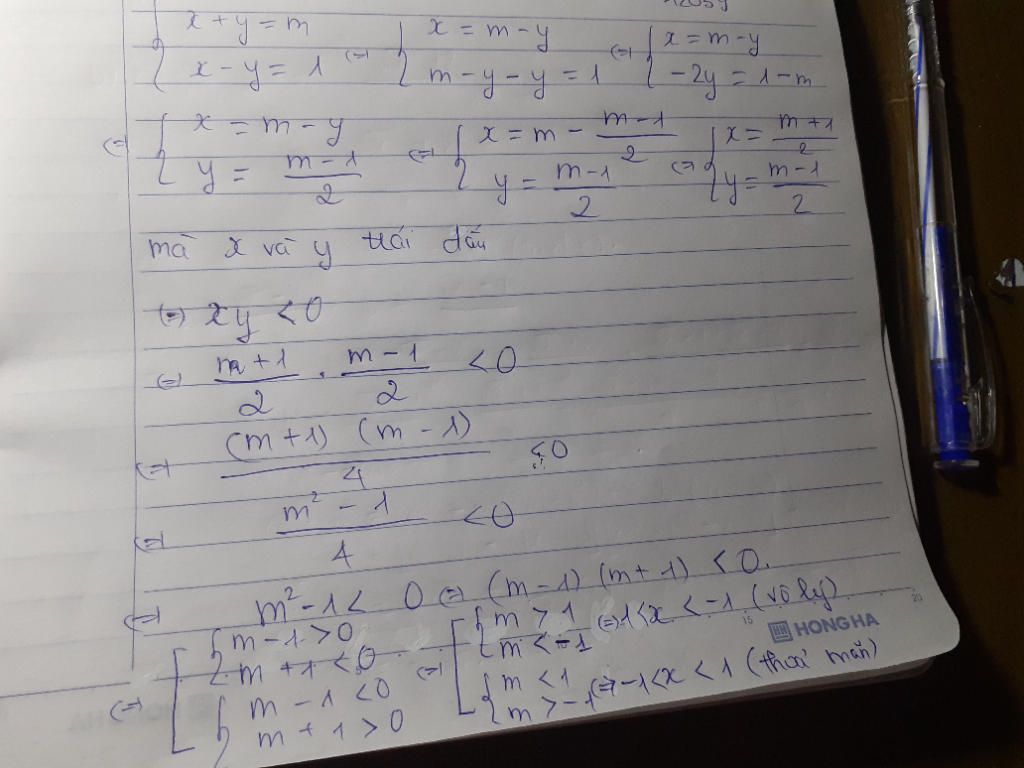 { x + y = m
x - y = 1 (=) { x = m - y
m - y - y = 1 (=) { x = m - y
-2y = 1 - m
(=) { x = m - y
y = \frac{m-1}{2} (=) { x = m - \frac{m-1}{2}
y = \frac{m-1}{2} (=) { x = \frac{m+1}{2}
y = \frac{m-1}{2}
mà x và y trái dấu
(=) xy < 0
(=) \frac{m+1}{2} . \frac{m-1}{2} < 0
(=) \frac{(m+1) (m-1)}{4} < 0
(=) \frac{m² - 1}{4} < 0
(=) m² - 1 < 0 (=) (m-1) (m+1) < 0.
(=) [ { m - 1 > 0
m + 1 < 0
{ m - 1 < 0
m + 1 > 0
(=) [ { m > 1
m < -1 (=) 1 < x < -1 (vô lý)
{ m < 1
m > -1 (=) -1 < x < 1 (thoả mãn)
15
20
HONG HA